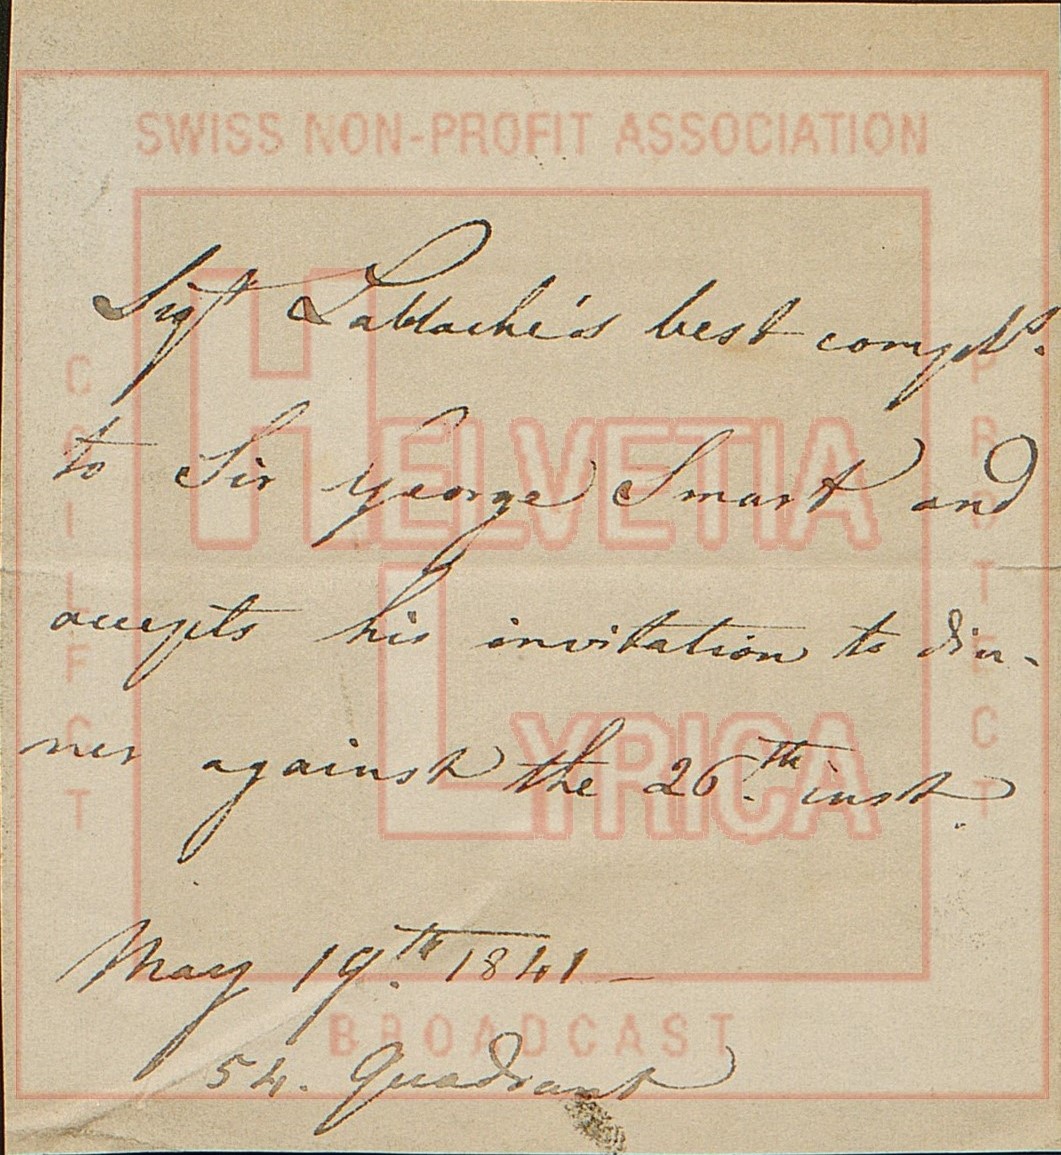 SWISS NON-PROFIT ASSOCIATION
Sigr Lablache's best complts.
to Sir George Smart and
accepts his invitation to din-
ner against the 26.th inst.
May 19.th 1841 –
54. Quadrant
HELVETIA
LYRICA
COLLECT
PROTECT
BROADCAST